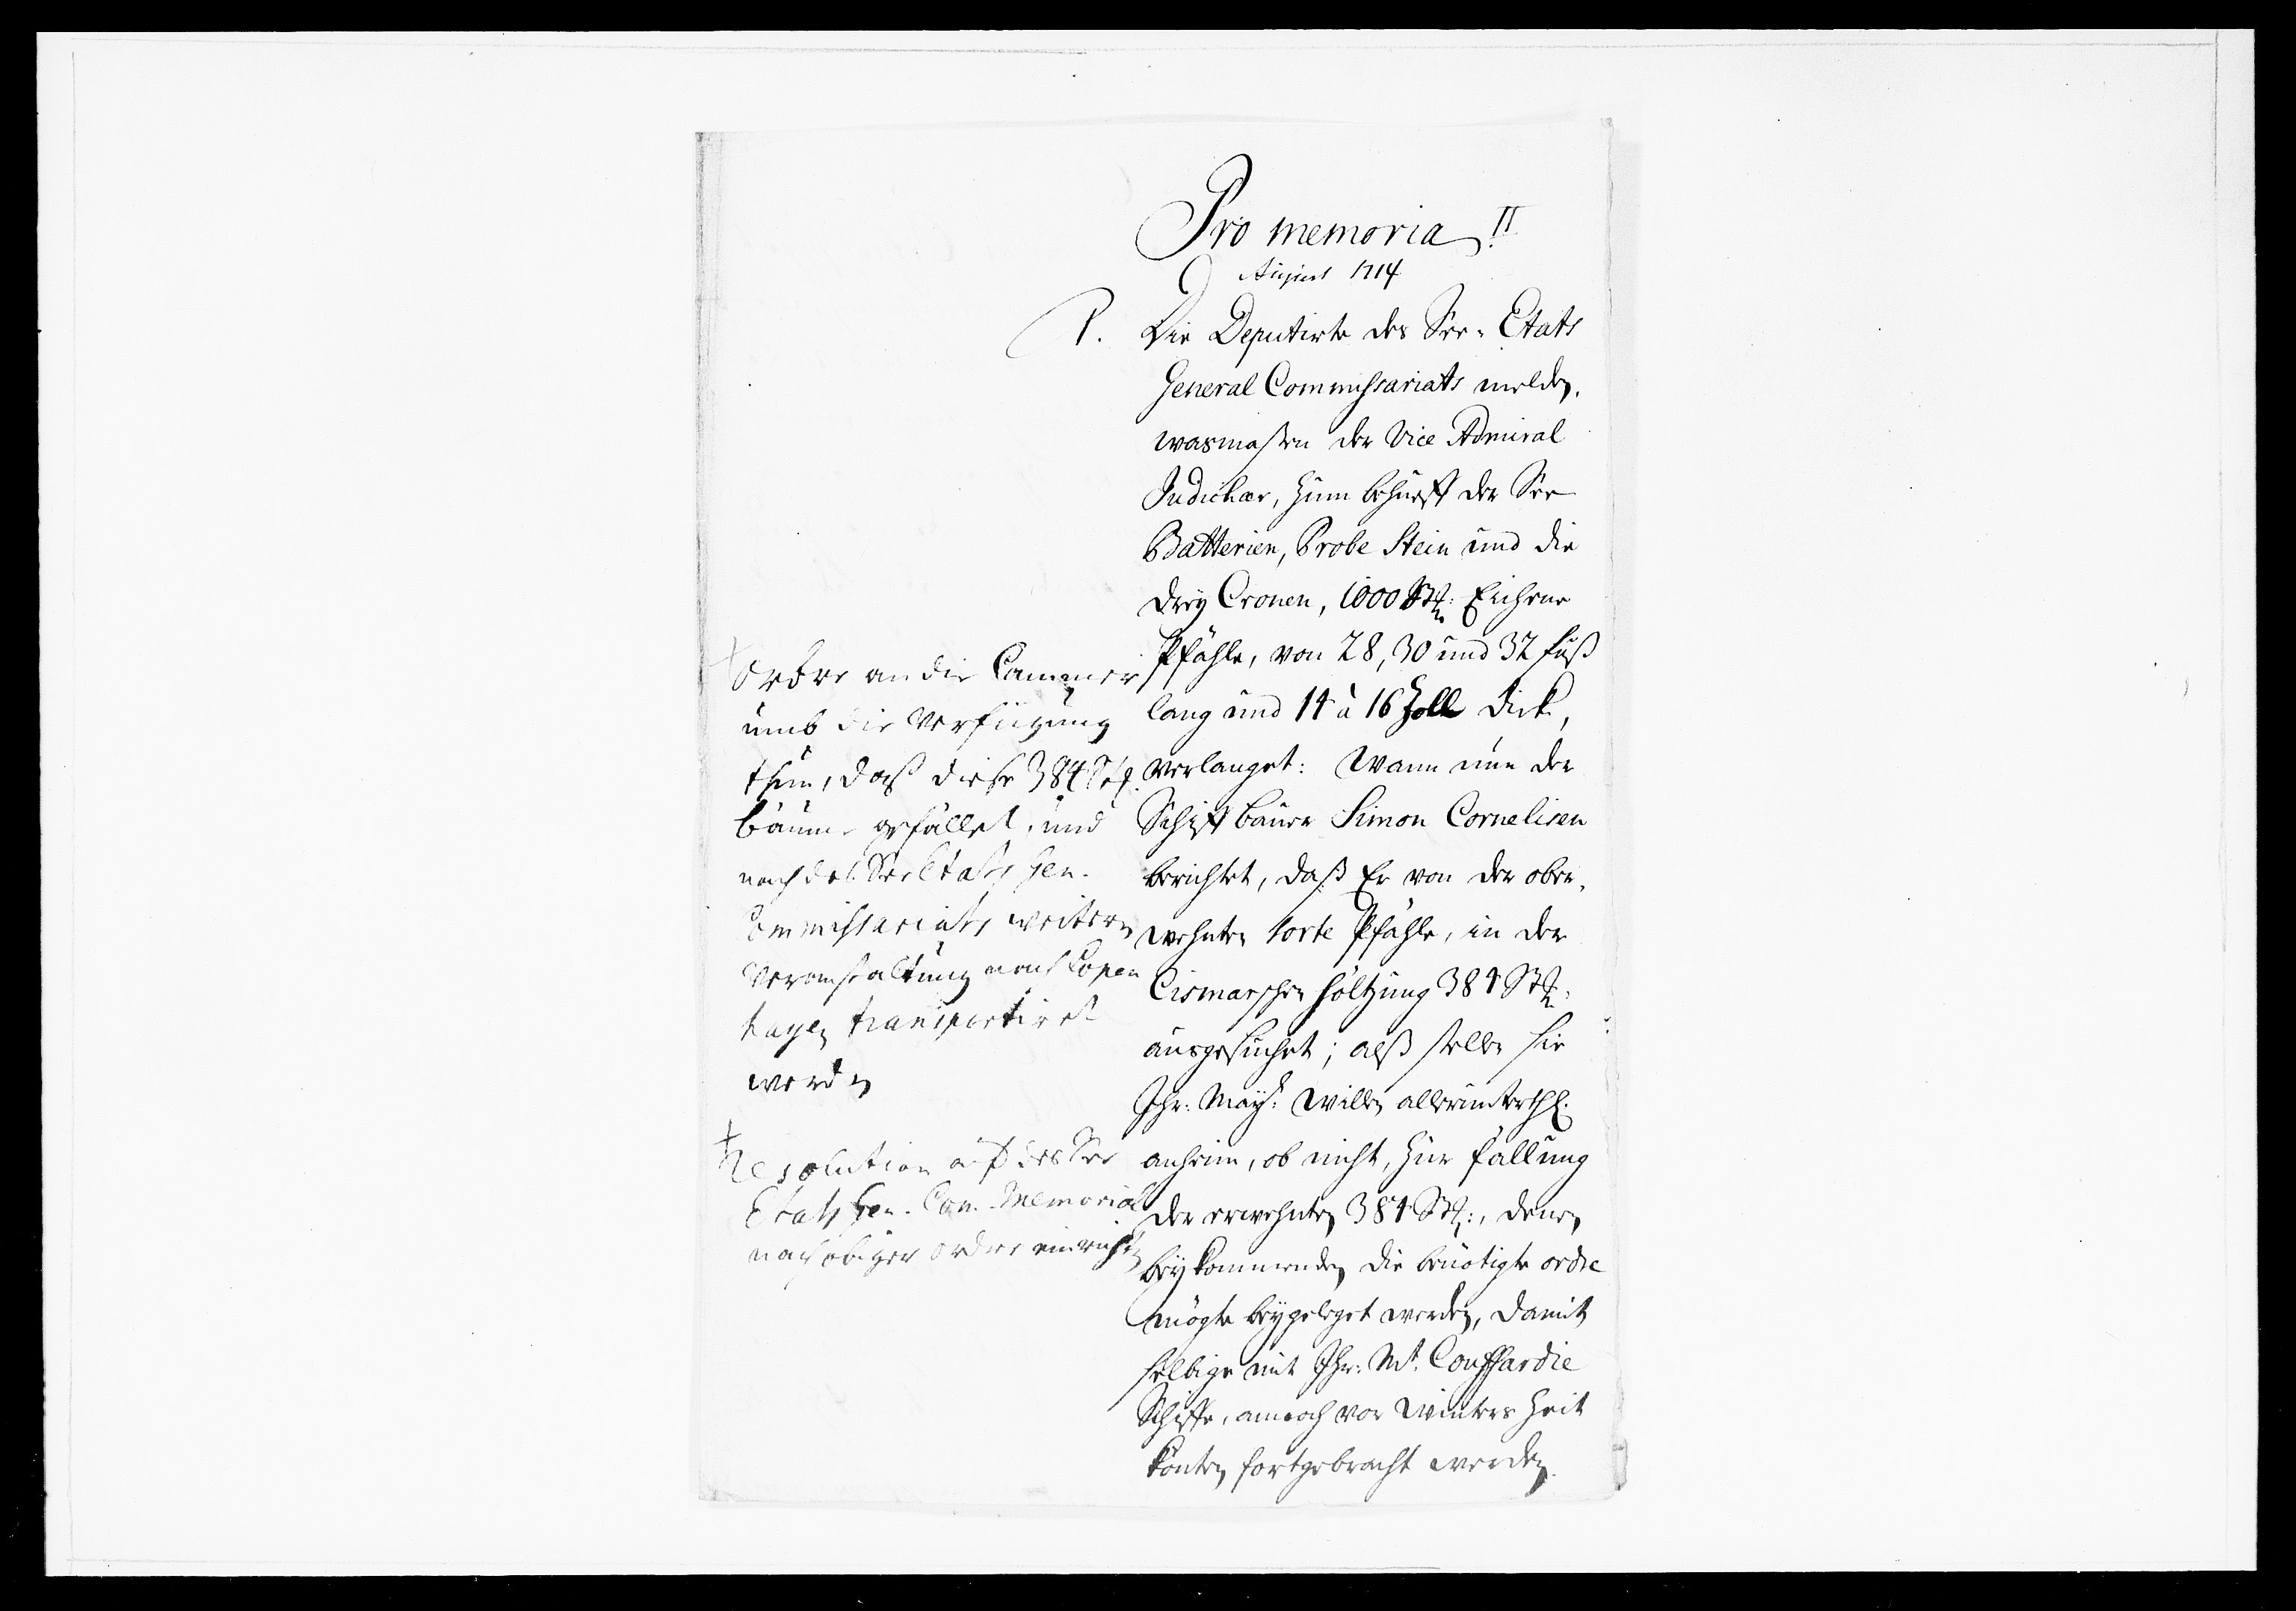 Pro memoria II
August 1714
P. Die Deputirte des See-Etats
General Commissariats melden,
wasmaßen der Vice Admiral
Judichær, zum behueff der See
Batterien, Probe Stein und die
drey Cronen, 1000 Stk: Eichene
Pfähle, von 28, 30 und 32 fuß
lang und 14 à 16 Zoll dick,
verlanget: Wann nun der
Schiffbauer Simon Cornelisen
berichtet, daß Er von der ober-
wehnten sorte Pfähle, in der
Cismarschen höltzung 384 Stk:
ausgesuchet; alß stellen sie
Ihr: Mayt: Willen allerunterthl:
anheim, ob nicht, zur fällung
der erwehnten 384 Stk:, denen
beykommenden die benötigte ordre
mögte beygeleget werden, damit
selbige mit Ihr: Mt: Couffardie
Schiffe, annoch vor Winters Zeit
könten fortgebracht werden.
+ Ordre an die Cammer
umb die Verfügung
thun, daß diese 384 Stk.
bäume gefället, und
nach des See Etats Gen.
Commissariats weitern
Veranstaltung nach Copen
hagen transportiret
werden
+ Resolution auf des See
Etats Gen. Com. Memorial
nach obiger ordre einrichten